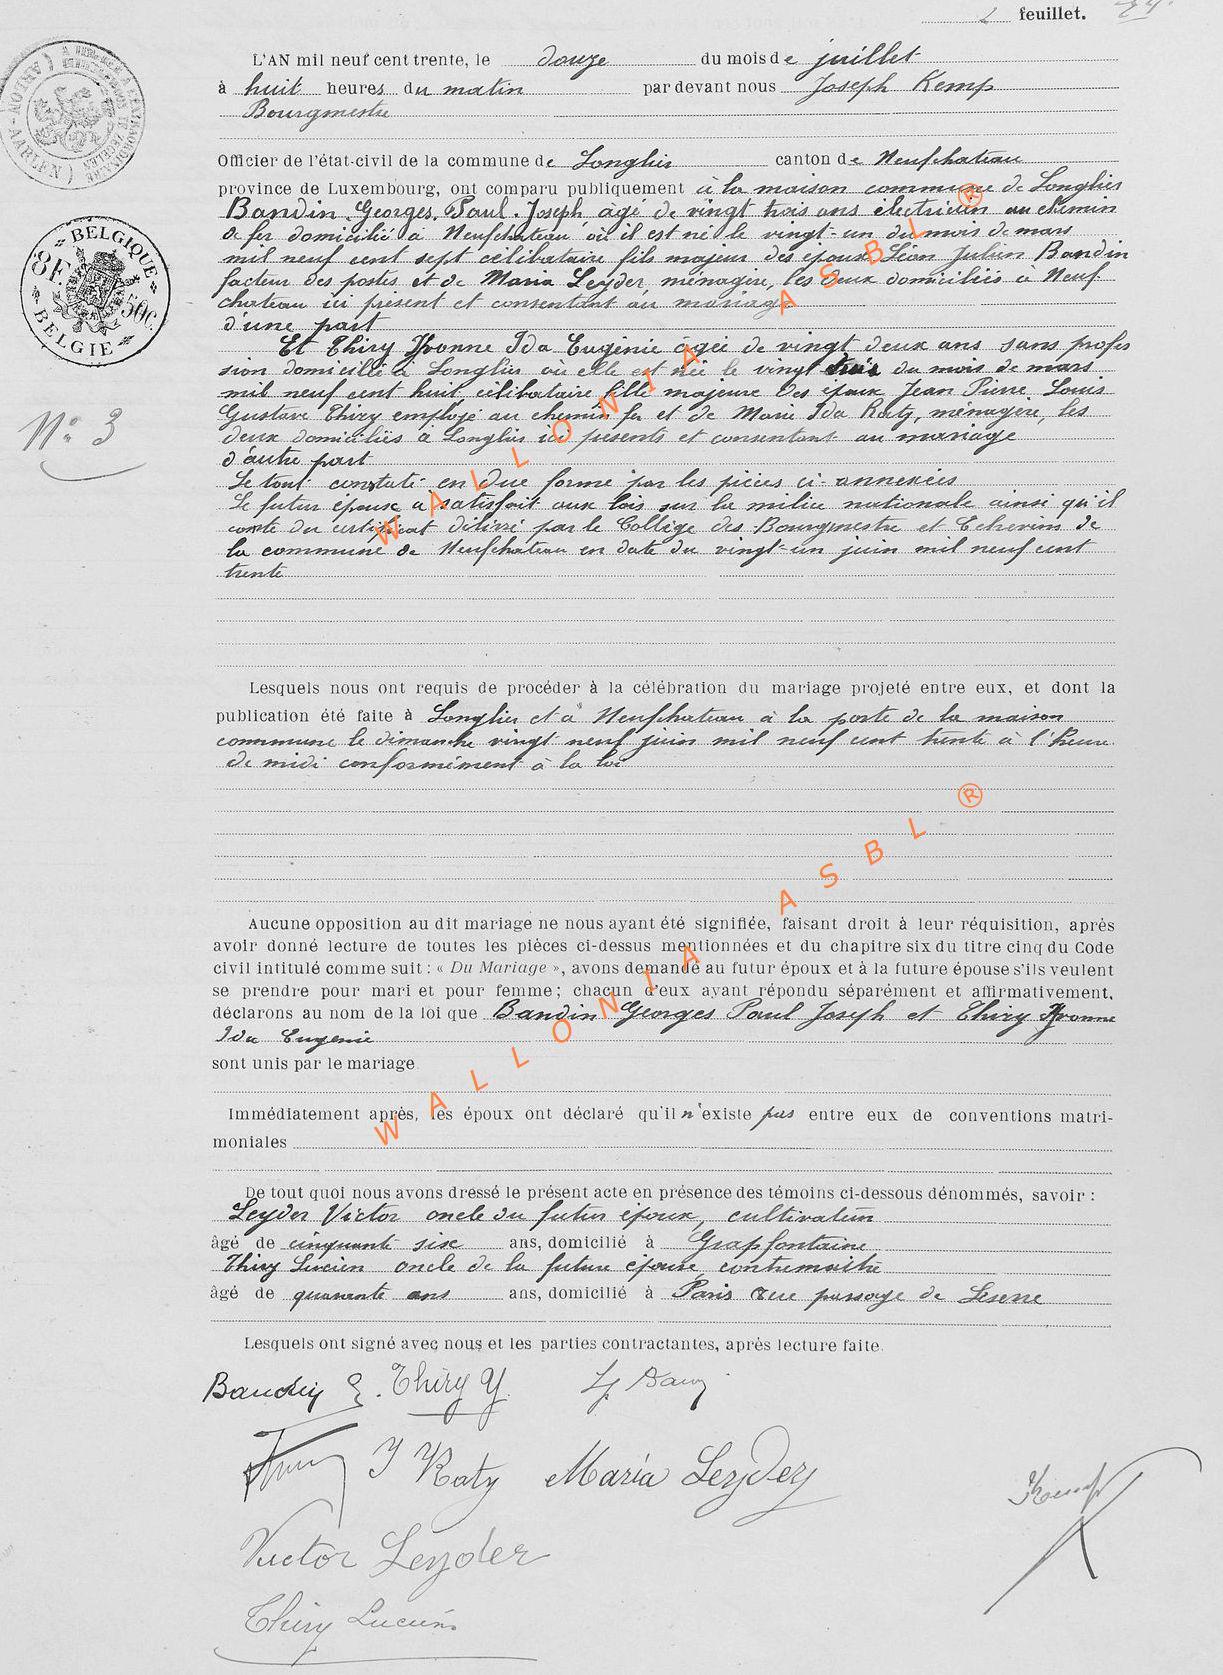 2 feuillet. 24.
L'AN mil neuf cent trente, le douze du mois de juillet
à huit heures du matin par devant nous Joseph Kemp
Bourgmestre
Officier de l'état-civil de la commune de Longlier canton de Neufchateau
province de Luxembourg, ont comparu publiquement à la maison commune de Longlier
Baudin Georges, Paul, Joseph âgé de vingt trois ans électricien au chemin
de fer domicilié à Neufchateau où il est né le vingt-un du mois de mars
mil neuf cent sept célibataire fils majeur des époux Léon Julien Baudin
facteur des postes et de Maria Leyder, ménagère, les deux domiciliés à Neuf
chateau ici présent et consentant au mariage
d'une part
Et Thiry Yvonne Ida Eugénie agée de vingt deux ans sans profes
sion domiciliée à Longlier où elle est née le vingt trois du mois de mars
mil neuf cent huit, célibataire fille majeure des époux Jean Pierre Louis
Gustave Thiry employé au chemin fer et de Marie Ida Katy, ménagère, les
deux domiciliés à Longlier ici présents et consentant au mariage
d'autre part
Le tout constaté en due forme par les pièces ci-annexées
Le futur époux a satisfait aux lois sur la milice nationale ainsi qu'il
conste du certificat délivré par le Collège des Bourgmestre et Echevins de
la commune de Neufchateau en date du vingt-un juin mil neuf cent
trente
Lesquels nous ont requis de procéder à la célébration du mariage projeté entre eux, et dont la
publication été faite à Longlier et à Neufchateau à la porte de la maison
commune le dimanche vingt neuf juin mil neuf cent trente à l'heure
de midi conformément à la loi
Aucune opposition au dit mariage ne nous ayant été signifiée, faisant droit à leur réquisition, après
avoir donné lecture de toutes les pièces ci-dessus mentionnées et du chapitre six du titre cinq du Code
civil intitulé comme suit : « Du Mariage », avons demandé au futur époux et à la future épouse s'ils veulent
se prendre pour mari et pour femme ; chacun d'eux ayant répondu séparément et affirmativement,
déclarons au nom de la loi que Baudin Georges Paul Joseph et Thiry Yvonne
Ida Eugénie
sont unis par le mariage
Immédiatement après, les époux ont déclaré qu'il n'existe pas entre eux de conventions matri-
moniales
De tout quoi nous avons dressé le présent acte en présence des témoins ci-dessous dénommés, savoir :
Leyder Victor oncle du futur époux, cultivateur
âgé de cinquante six ans, domicilié à Grapfontaine
Thiry Lucien oncle de la future épouse, contremaitre
âgé de quarante ans ans, domicilié à Paris rue passage de
Lesquels ont signé avec nous et les parties contractantes, après lecture faite.
Baudin G. Thiry Y.
I Katy Maria Leyder
Kemp
Victor Leyder
Thiry Lucien
BELGIQUE
8F. 50C.
BELGIE
N° 3
WALLONIA ASBL ®
WALLONIA ASBL ®